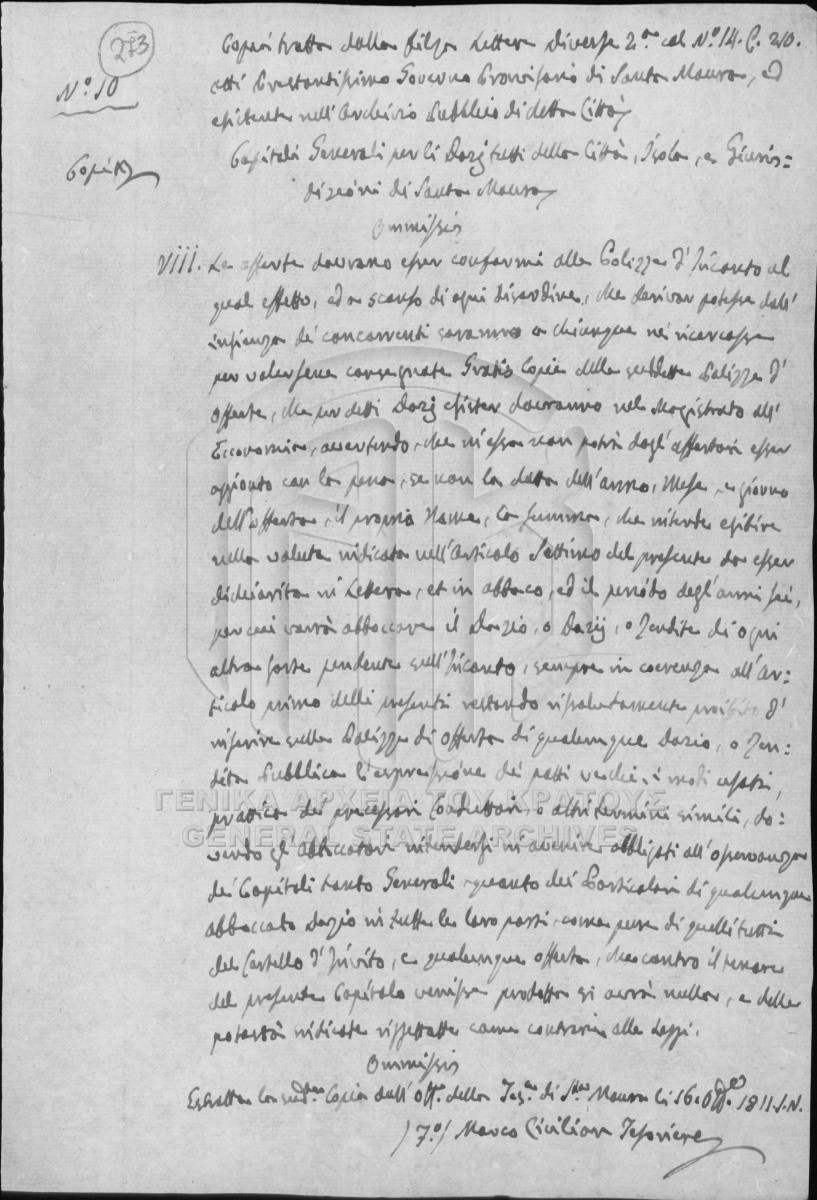 273
N.º 10
Copia tratta dalla filza Lettere Diverse 2.da col N.º 14. C. 210.
etti Prestantissimo Governo Provisorio di Santa Maura, ed
esistente nell'Archivio Pubblico di detta Città
Copia
Capitoli Generali per li Dazj tutti della Città, Isola, e Giuris=
dizioni di Santa Maura
Ommissis
VIII. Le offerte dovranno esser conformi alla Polizza d'Incanto al
qual effetto, ed a scanso di ogni disordine, che derivar potesse dall'
de' concorrenti saranno a chiunque ne ricercasse
per valersene consegnate Gratis Copie della suddetta Polizza d'
Offerte, che per detti Dazj esister dovranno nel Magistrato all'
Economia, avvertendo, che in essa non potrà dagl'offertori esser
aggionto con la pena, se non la data dell'anno, Mese, e giorno
dell'offerta, il proprio Nome, la summa, che intende esibire
nella valuta indicata nell'Articolo Settimo del presente da esser
dichiarita in Lettera, et in abbaco, ed il periodo degl'anni sei,
per cui vorrà abboccare il Dazio, o Dazij, o Rendite di ogni
altra sorte pendente sull'Incanto, sempre in coerenza all'Ar=
ticolo primo delli presenti restando risolutamente proibito d'
inserire nella Polizza di offerta di qualunque Dazio, o Ren=
dita Pubblica l'espressione dei patti vecchi, i modi usati,
prattica dei precessori Conduttori, o altri termini simili, do=
vendo gl'Abboccatori intendersi in avenire obbligati all'osservanza
dei Capitoli tanto Generali, quanto dei Particolari di qualunque
abboccato Dazio in tutte le loro parti, come pure di quelli tutti
del Cartello d'Invito, e qualunque offerta, che contro il tenore
del presente Capitolo venisse prodotta si avrà nulla, e dalle
potestà indicate rigettate come contrarie alle Leggi.
Ommissis
Estratta la sud.ta Copia dall'Off.º della Tes.ia di S.ta Maura li 16. 1811. S.N.
Marco Civilian Tesoriere
ΓΕΝΙΚΑ ΑΡΧΕΙΑ ΤΟΥ ΚΡΑΤΟΥΣ
GENERAL STATE ARCHIVES